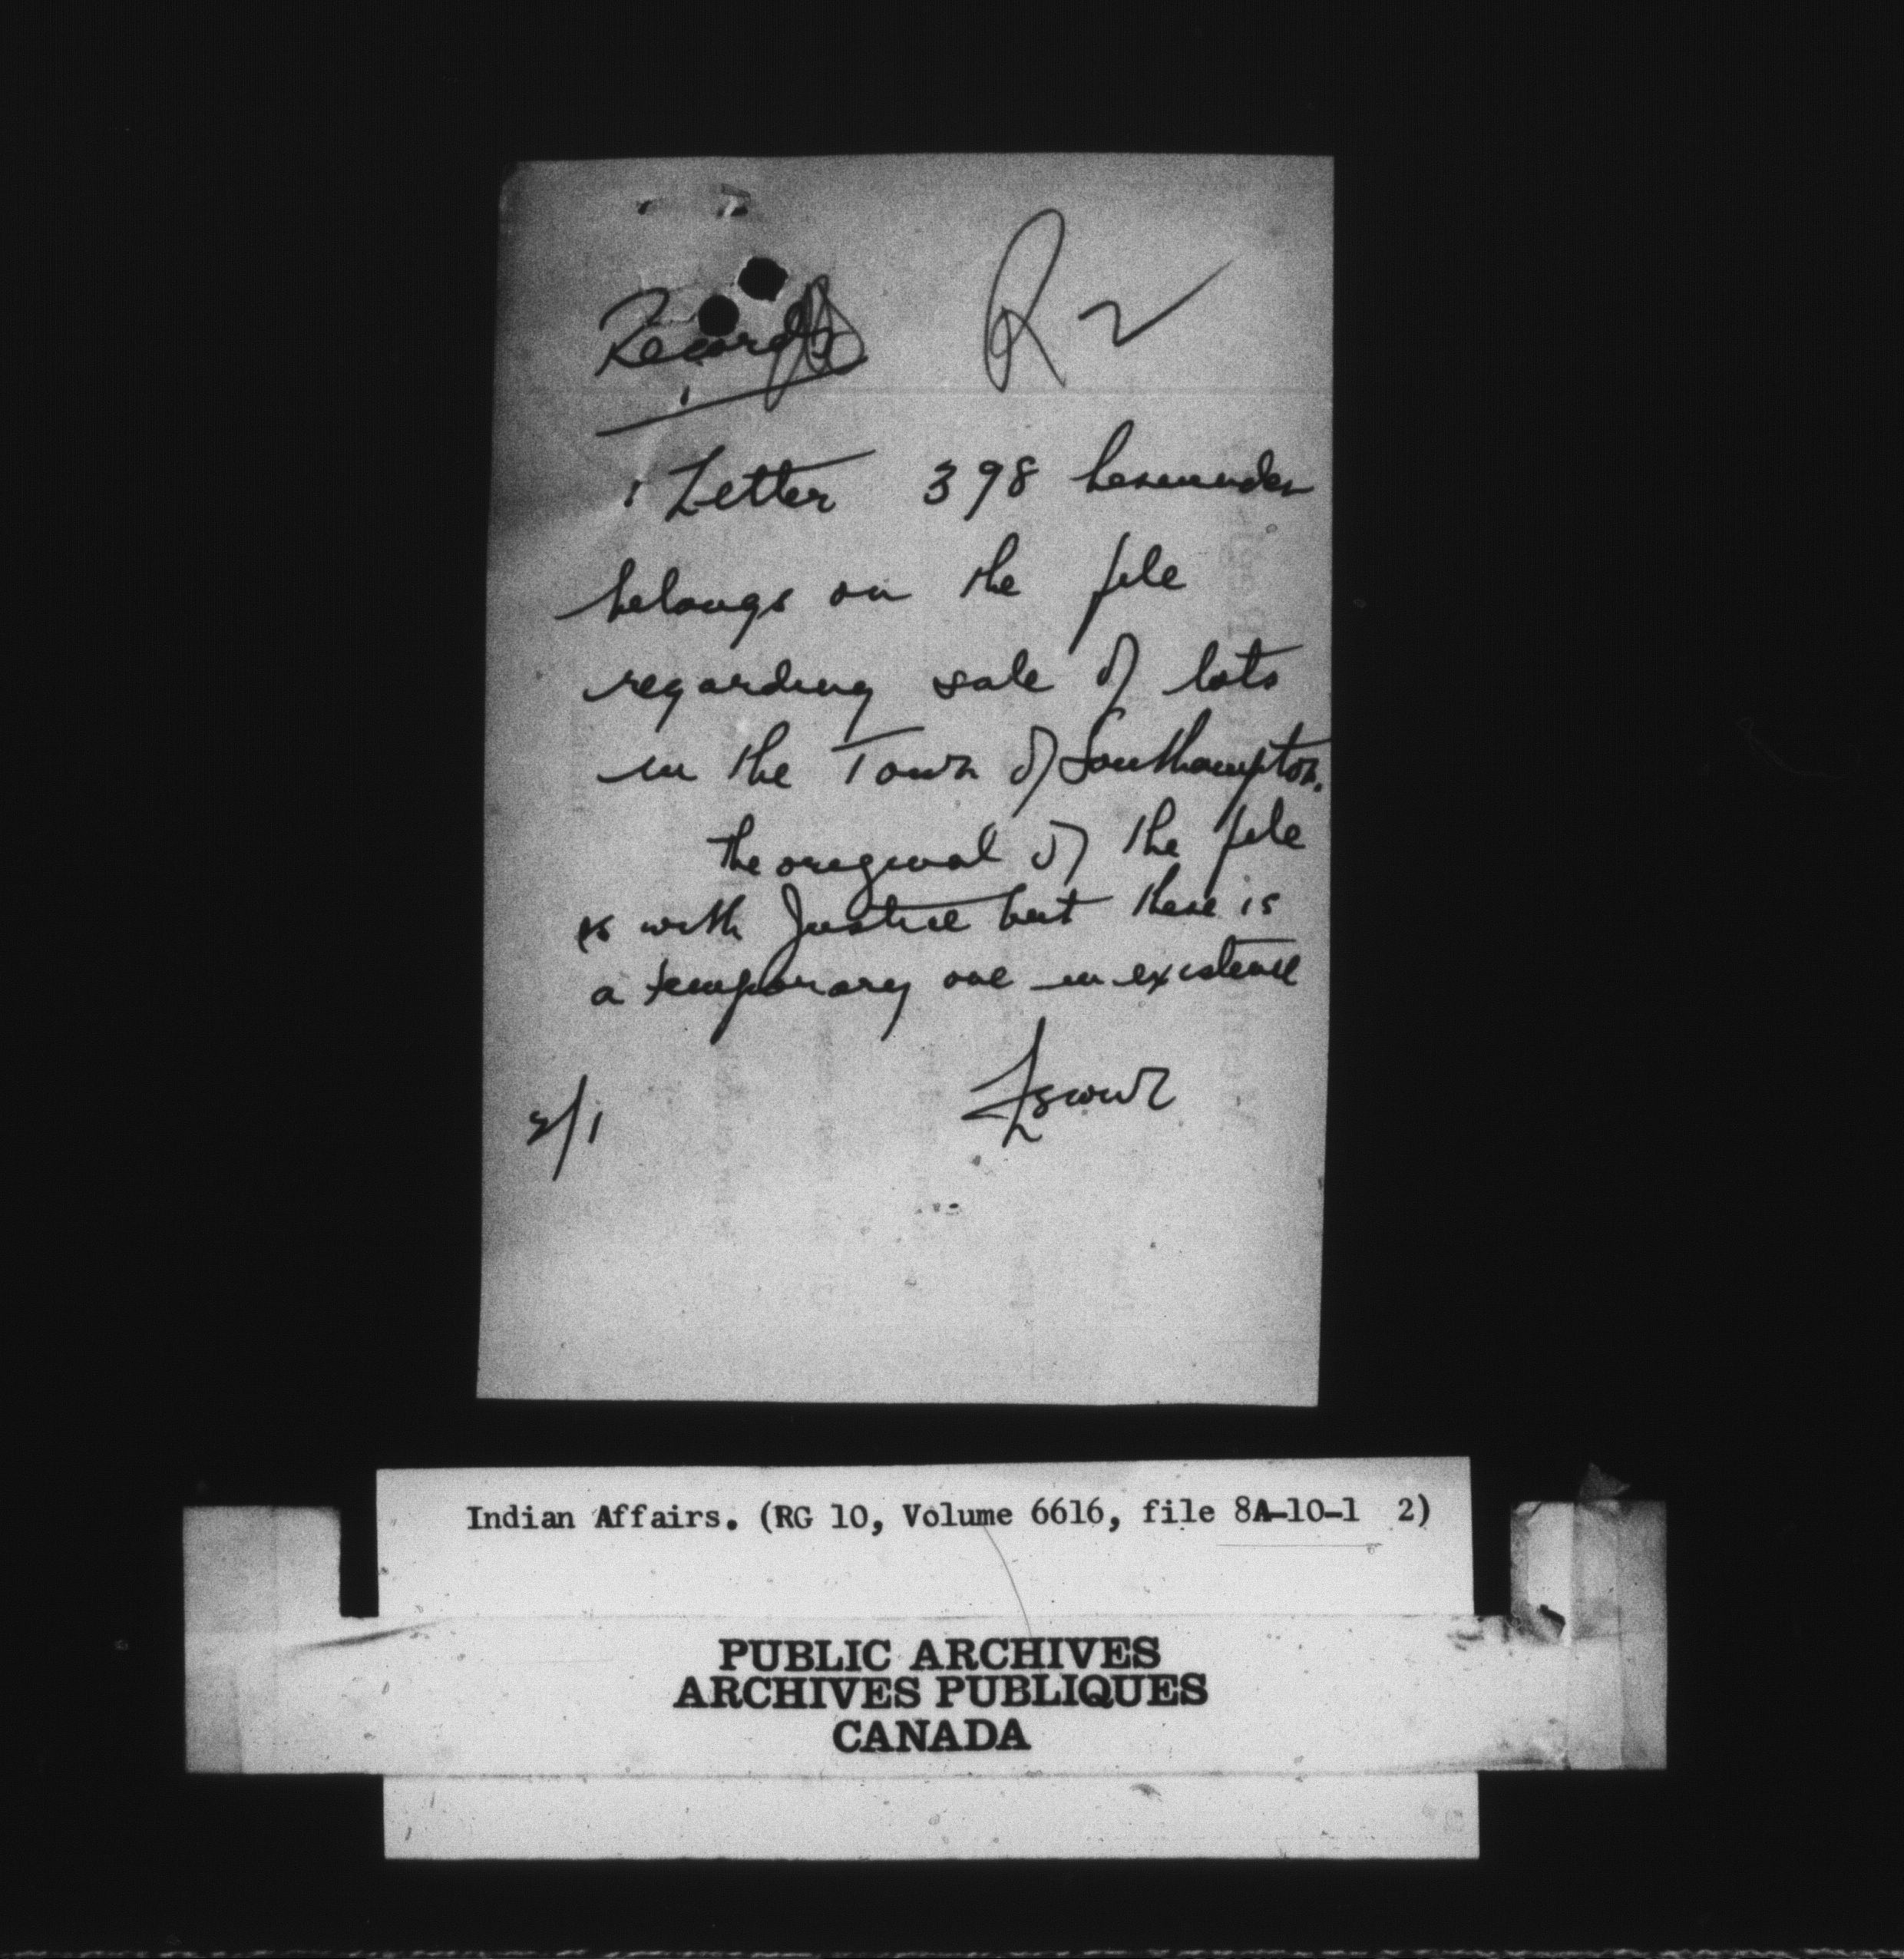 Records
R 2
Letter 398 hereunder
belongs on the file
regarding sale of lots
in the Town of Southampton.
The original of the file
is with Justice but there is
a temporary one in existence
2/1
Indian Affairs. (RG 10, Volume 6616, file 8A-10-1 2)
PUBLIC ARCHIVES
ARCHIVES PUBLIQUES
CANADA